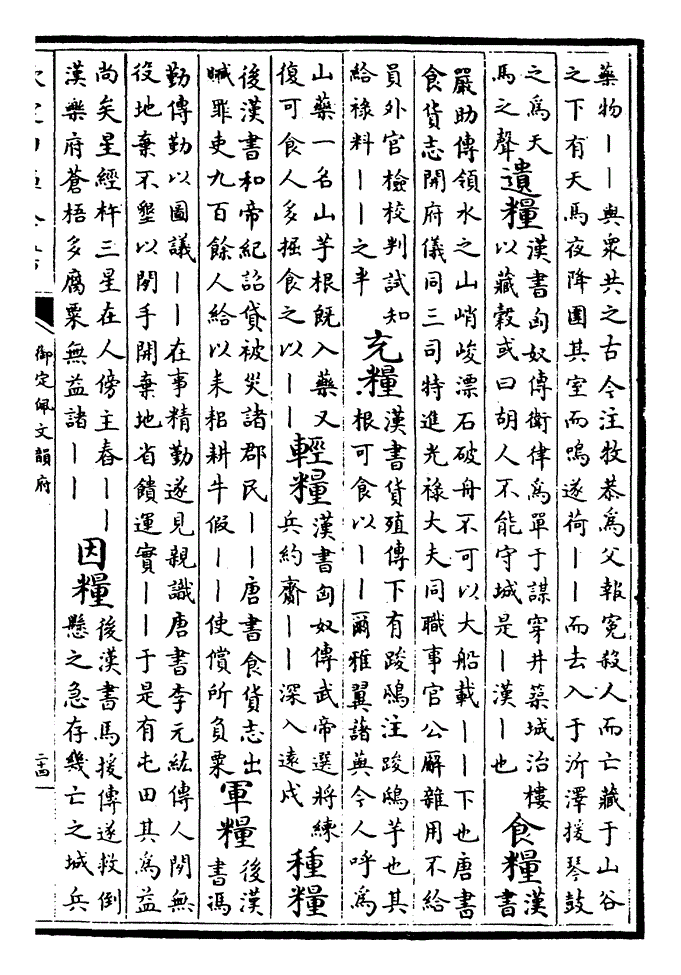 藥物丨丨與衆共之古今注牧恭為父報寃殺人而亡藏于山谷
之下有天馬夜降圍其室而鳴遂荷丨丨而去入于沂澤援琴鼓
之為天
馬之聲
遺糧
漢書匈奴傳衛律為單于謀穿井築城治樓
以藏穀或曰胡人不能守城是丨漢丨也
食糧
漢
書
嚴助傳領水之山峭峻漂石破舟不可以大船載丨丨下也唐書
食貨志開府儀同三司特進光禄大夫同職事官公廨雜用不給
員外官檢校判試知
給禄料丨丨之半
充糧
漢書貨殖傳下有踆鴟注踆鴟芋也其
根可食以丨丨爾雅翼藷藇今人呼為
山藥一名山芋根既入藥又
復可食人多掘食之以丨丨
輕糧
漢書匈奴傳武帝選將練
兵約齎丨丨深入逺戍
種糧
後漢書和帝紀詔貸被災諸郡民丨丨唐書食貨志出
贓罪吏九百餘人給以耒耜耕牛假丨丨使償所負粟
軍糧
後漢
書馮
勤傳勤以圖議丨丨在事精勤遂見親識唐書李元紘傳人閒無
役地棄不墾以閒手開棄地省饋運實丨丨于是有屯田其為益
尚矣星經杵三星在人傍主舂丨丨
漢樂府蒼梧多腐粟無益諸丨丨
因糧
後漢書馬援傳遂救倒
懸之急存幾亡之城兵
御定佩文韻府
二十四